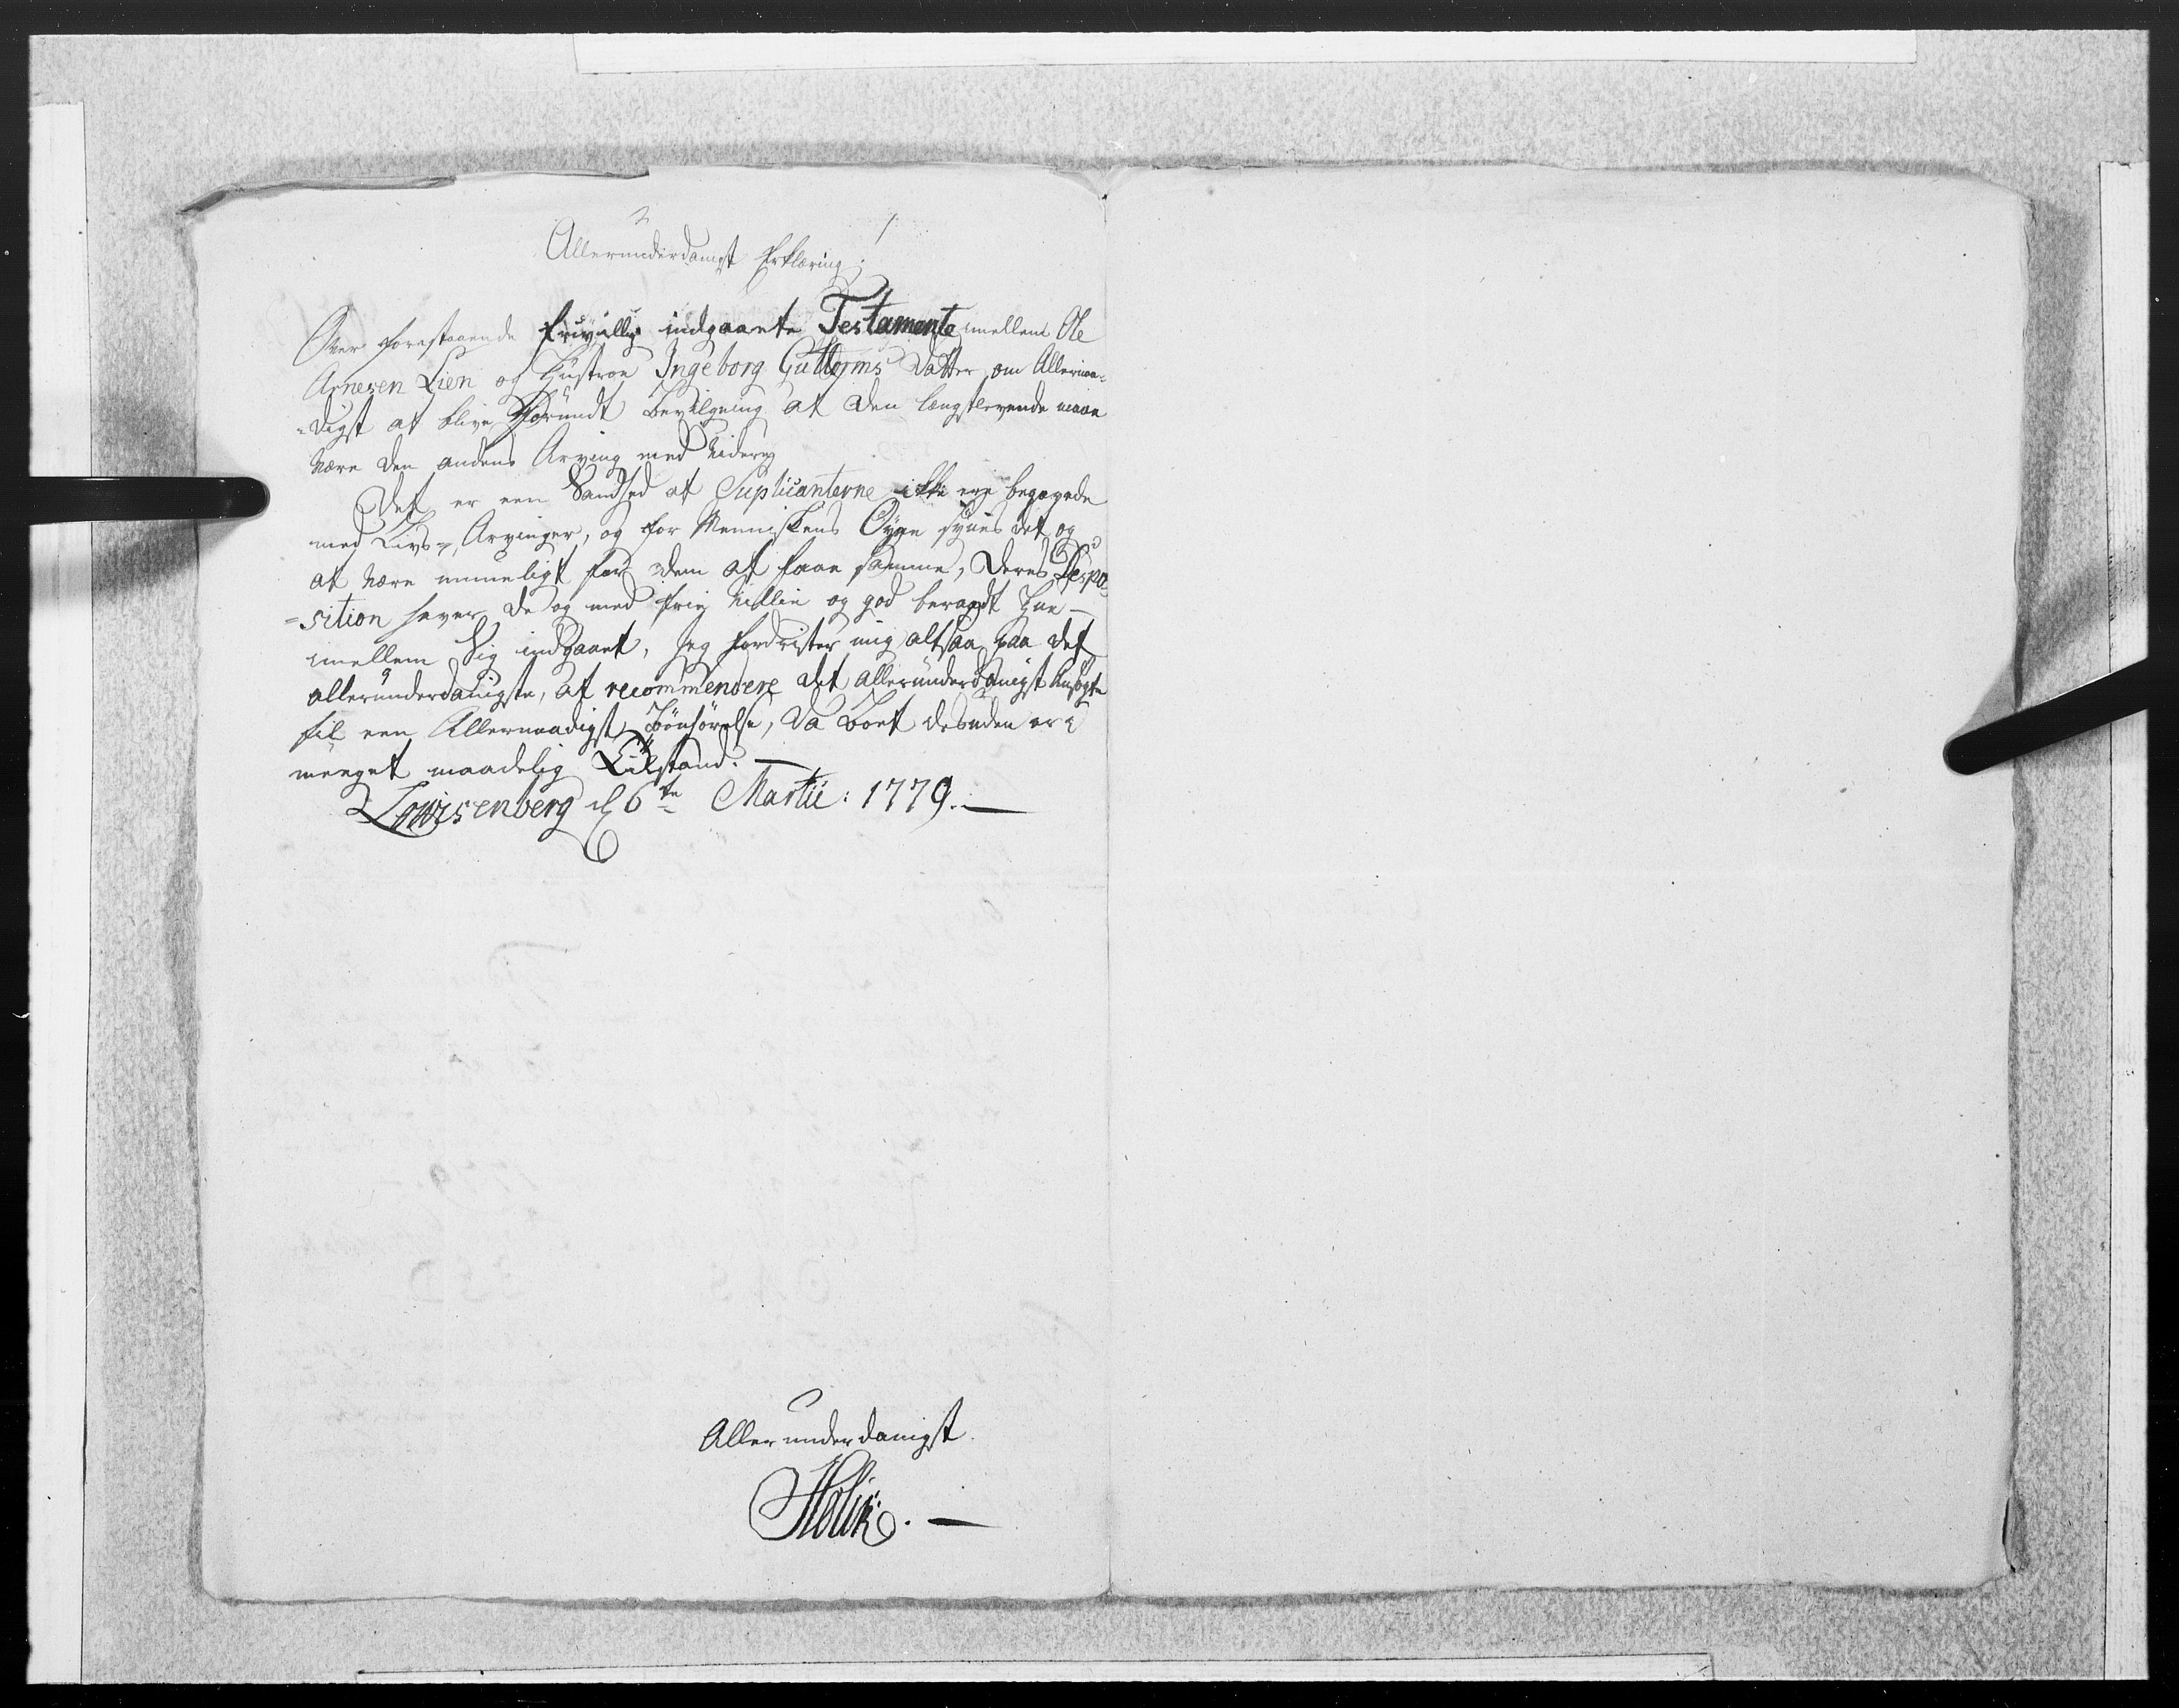 Allerunderdanigst Erklæring.
Over forestaaende frivillig indgaaete Testamente imellem Ole
Arnesen Lien og Hustroe Ingeborg Guttorms Datter, om Allernaa-
-digst at blive Forundt Bevilgning at den længstlevende maae
være den andens Arving med videre
Det er een Sandhed at Suplicanterne ikke ere begavede
med Livs-Arvinger, og for Menniskens Øyne synes det og
at være umueligt for dem at faae samme, deres Despo-
=sition haver de og med frie Villie og god beraad Hue
imellem Sig indgaaet, Jeg fordrister mig altsaa paa det
allerunderdanigste, at recommendere det allerunderdanigst Ansøgte
til een Allernaadigst Bönhörelse, da Boet desuden er i
meeget maadelig Tilstand.
Lowisenberg d 6te Martii: 1779.
Allerunderdanigst